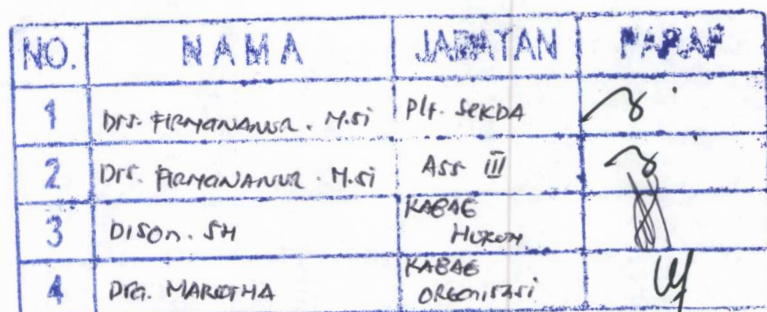 NO. NAMA JABATAN PARAF
1 Drs. FIRMANANUR. M.Si Plt. SEKDA
2 Drs. FIRMANANUR. M.Si Ass III
3 DISON. SH KABAG HUKUM.
4 Dra. MARGTHA KABAG ORGANISASI